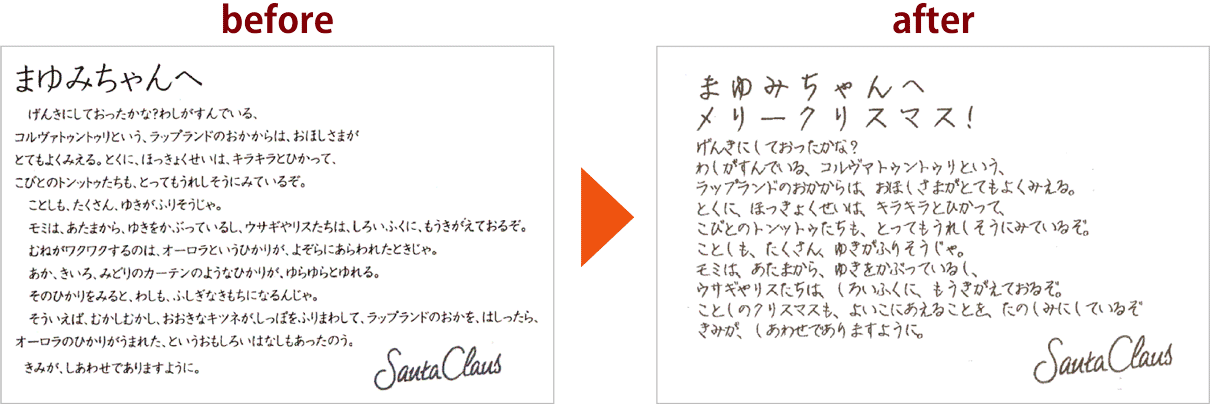 before
まゆみちゃんへ
げんきにしておったかな?わしがすんでいる、
コルヴァトゥントゥリという、ラップランドのおかからは、おほしさまが
とてもよくみえる。とくに、ほっきょくせいは、キラキラとひかって、
こびとのトンットゥたちも、とってもうれしそうにみているぞ。
ことしも、たくさん、ゆきがふりそうじゃ。
モミは、あたまから、ゆきをかぶっているし、ウサギやリスたちは、しろいふくに、もうきがえておるぞ。
むねがワクワクするのは、オーロラというひかりが、よぞらにあらわれたときじゃ。
あか、きいろ、みどりのカーテンのようなひかりが、ゆらゆらとゆれる。
そのひかりをみると、わしも、ふしぎなきもちになるんじゃ。
そういえば、むかしむかし、おおきなキツネが、しっぽをふりまわして、ラップランドのおかを、はしったら、
オーロラのひかりがうまれた、というおもしろいはなしもあったのう。
きみが、しあわせでありますように。
Santa Claus
after
まゆみちゃんへ
メリークリスマス!
げんきにしておったかな?
わしがすんでいる、コルヴァトゥントゥリという、
ラップランドのおかからは、おほしさまがとてもよくみえる。
とくに、ほっきょくせいは、キラキラとひかって、
こびとのトンットゥたちも、とってもうれしそうにみているぞ。
ことしも、たくさん、ゆきがふりそうじゃ。
モミは、あたまから、ゆきをかぶっているし、
ウサギやリスたちは、しろいふくに、もうきがえておるぞ。
ことしのクリスマスも、よいこにあえることを、たのしみにしているぞ
きみが、しあわせでありますように。
Santa Claus